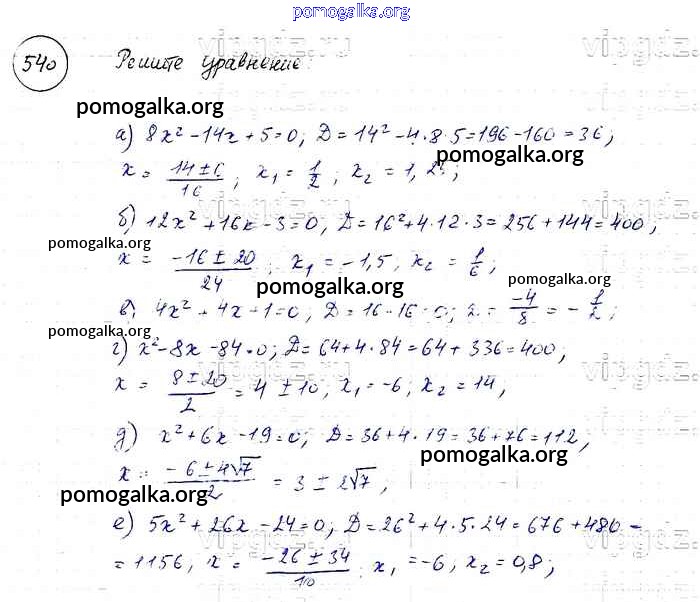 pomogalka.org
540 Решите уравнение:
pomogalka.org
а) 8x² - 14x + 5 = 0; D = 14² - 4·8·5 = 196 - 160 = 36;
pomogalka.org
x = (14 ± 6)/16; x₁ = 1/2; x₂ = 1,25;
б) 12x² + 16x - 3 = 0; D = 16² + 4·12·3 = 256 + 144 = 400;
pomogalka.org
x = (-16 ± 20)/24; x₁ = -1,5, x₂ = 1/6;
pomogalka.org pomogalka.org
в) 4x² + 4x + 1 = 0; D = 16 - 16 = 0; x = -4/8 = -1/2;
pomogalka.org
г) x² - 8x - 84 = 0; D = 64 + 4·84 = 64 + 336 = 400;
x = (8 ± 20)/2 = 4 ± 10; x₁ = -6; x₂ = 14,
д) x² + 6x - 19 = 0; D = 36 + 4·19 = 36 + 76 = 112,
pomogalka.org
x = (-6 ± 4√7)/2 = 3 ± 2√7,
pomogalka.org
е) 5x² + 26x - 24 = 0; D = 26² + 4·5·24 = 676 + 480 =
= 1156, x = (-26 ± 34)/10; x₁ = -6, x₂ = 0,8;